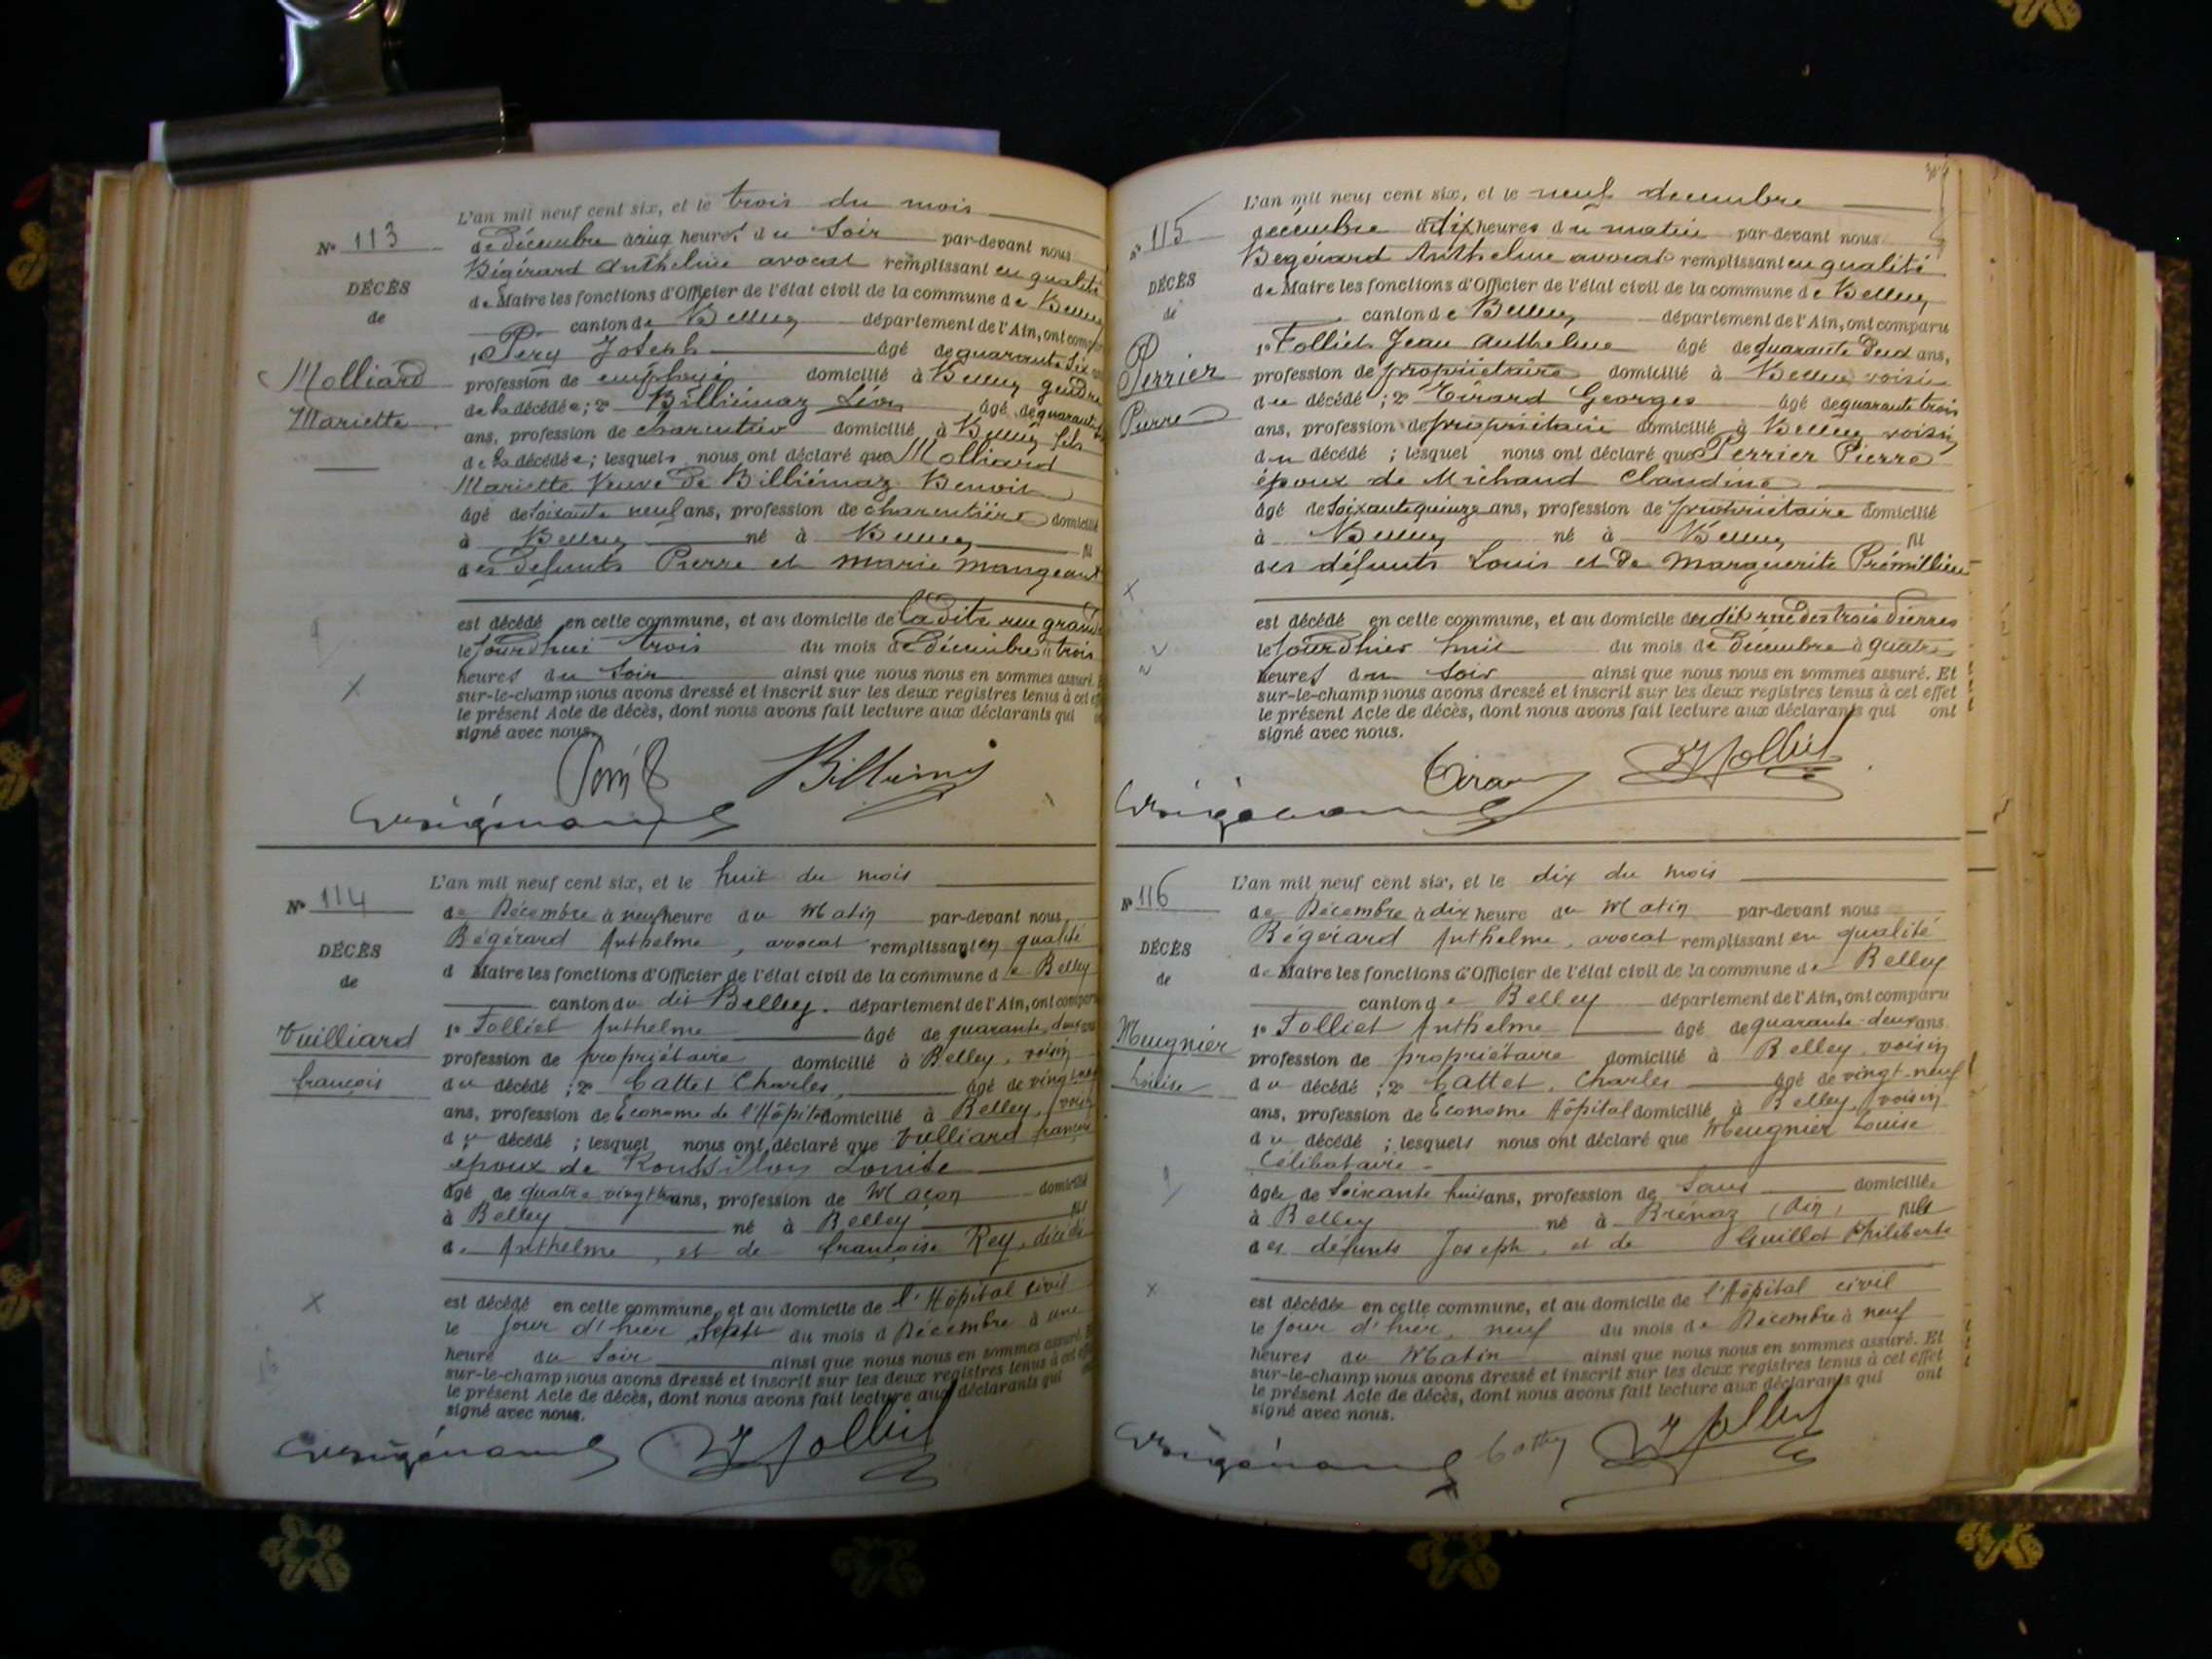 L'an mil neuf cent six, et le trois du mois
N° 113
de décembre à cinq heures du soir par-devant nous
Bégérard Anthelme avocat remplissant en qualité
DÉCÈS
de Maire les fonctions d'Officier de l'état civil de la commune de Belley
de
canton de Belley département de l'Ain, ont comparu
1° Péry Joseph âgé de quarante six
Molliard
profession de employé domicilié à Belley gendre
de la décédée; 2° Billiémaz Léon âgé de quarante
Mariette
ans, profession de charcutier domicilié à Belley fils
de la décédée; lesquels nous ont déclaré que Molliard
Mariette Veuve de Billiémaz Benoit
âgé de soixante neuf ans, profession de charcutière domicilié
à Belley né à Belley fil
des défunts Pierre et Marie Mangeant
est décédé en cette commune, et au domicile de la dite rue grande
le jourd'hui trois du mois de décembre à trois
heures du soir ainsi que nous nous en sommes assuré.
sur-le-champ nous avons dressé et inscrit sur les deux registres tenus à cet
le présent Acte de décès, dont nous avons fait lecture aux déclarants qui
signé avec nous.
L'an mil neuf cent six, et le huit du mois
N° 114
de Décembre à neuf heure du Matin par-devant nous
Bégérard Anthelme, avocat remplissant en qualité
DÉCÈS
d Maire les fonctions d'Officier de l'état civil de la commune de Belley
de
canton du dit Belley. département de l'Ain, ont comparu
1° Folliet Anthelme âgé de quarante deux ans
Vuilliard
profession de propriétaire domicilié à Belley, voisin
françois
du décédé; 2° Cattet Charles, âgé de vingt
ans, profession de Econome de l'Hôpital domicilié à Belley, voisin
du décédé; lesquel nous ont déclaré que Vuilliard françois
époux de Roussillon Louise
âgé de quatre vingt ans, profession de Maçon domicilié
à Belley né à Belley fil
de Anthelme, et de françoise Rey, décédé
est décédé en cette commune, et au domicile de l'Hôpital civil
le jour d'hier sept du mois d Décembre à une
heure du Soir ainsi que nous nous en sommes assuré.
sur-le-champ nous avons dressé et inscrit sur les deux registres tenus à cet
le présent Acte de décès, dont nous avons fait lecture aux déclarants qui
signé avec nous.
L'an mil neuf cent six, et le neuf decembre
N° 115
décembre à dix heures du matin par-devant nous
Bégérard Anthelme avocat remplissant en qualité
DÉCÈS
de Maire les fonctions d'Officier de l'état civil de la commune de Belley
de
canton de Belley département de l'Ain, ont comparu
1° Folliet Jean Anthelme âgé de quarante deux ans,
Perrier
profession de propriétaire domicilié à Belley voisin
du décédé; 2° Girard Georges âgé de quarante trois
Pierre
ans, profession de propriétaire domicilié à Belley voisin
du décédé; lesquel nous ont déclaré que Perrier Pierre
époux de Michaud Claudine
âgé de soixante quinze ans, profession de propriétaire domicilié
à Belley né à Belley fil
des défunts Louis et de Marguerite Prémillieu
est décédé en cette commune, et au domicile du dit rue des trois Pierres
le jourd'hier huit du mois de décembre à quatre
heures du soir ainsi que nous nous en sommes assuré. Et
sur-le-champ nous avons dressé et inscrit sur les deux registres tenus à cet effet
le présent Acte de décès, dont nous avons fait lecture aux déclarants qui ont
signé avec nous.
L'an mil neuf cent six, et le dix du mois
N° 116
de Décembre à dix heure du Matin par-devant nous
Bégérard Anthelme, avocat remplissant en qualité
DÉCÈS
de Maire les fonctions d'Officier de l'état civil de la commune de Belley
de
canton de Belley département de l'Ain, ont comparu
1° Folliet Anthelme âgé de quarante-deux ans
Meugnier
profession de propriétaire domicilié à Belley, voisin
Louise
du décédé; 2° Cattet, Charles âgé de vingt-neuf
ans, profession de Econome Hôpital domicilié à Belley, voisin
du décédé; lesquels nous ont déclaré que Meugnier Louise
Célibataire
âgée de soixante huit ans, profession de Sans domiciliée
à Belley né à Brénaz (Ain) fille
des défunts Joseph, et de Guillot Philiberte
est décédée en cette commune, et au domicile de l'Hôpital civil
le jour d'hier, neuf du mois de Décembre à neuf
heures du Matin ainsi que nous nous en sommes assuré. Et
sur-le-champ nous avons dressé et inscrit sur les deux registres tenus à cet effet
le présent Acte de décès, dont nous avons fait lecture aux déclarants qui ont
signé avec nous.